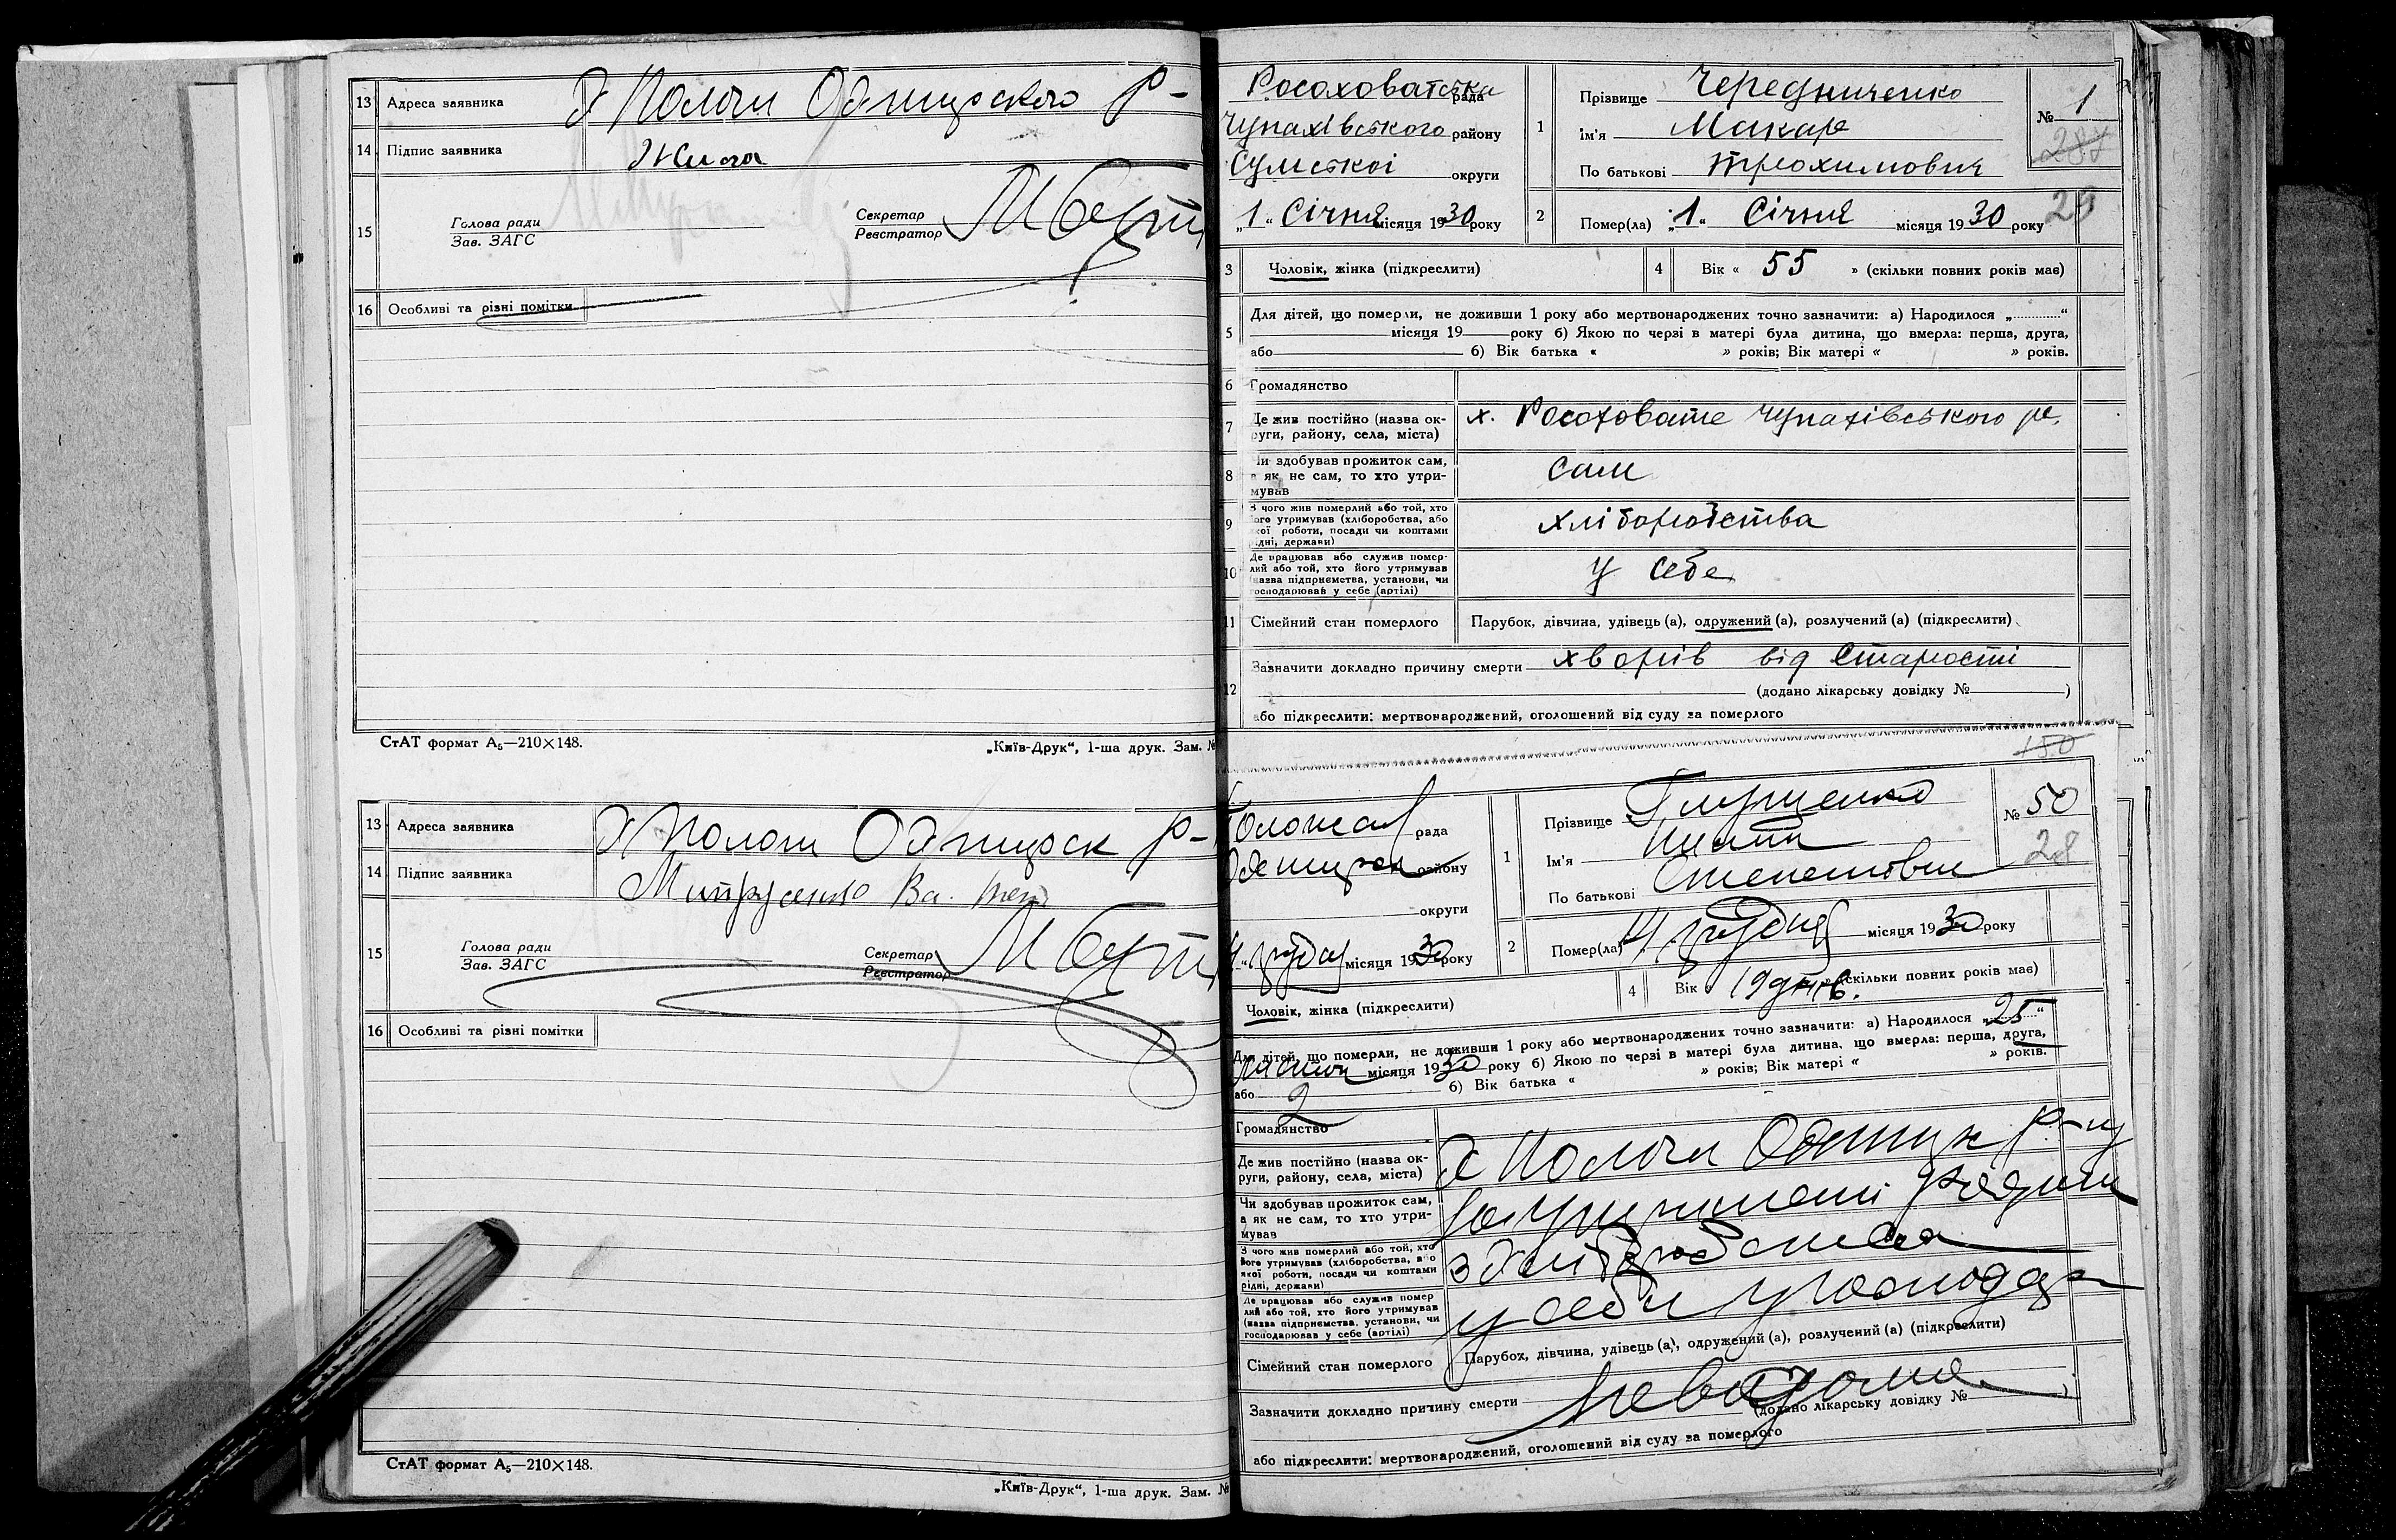 13 Адреса заявника х Пологи Охтирського р-
14 Підпис заявника
15 Голова ради
Зав. ЗАГС
Секретар
Реєстратор
16 Особливі та різні помітки
СтАТ формат А₅—210×148.
„Київ-Друк“, 1-ша друк. Зам. №
13 Адреса заявника х Пологи Охтирськ р-
14 Підпис заявника
15 Голова ради
Зав. ЗАГС
Секретар
Реєстратор
16 Особливі та різні помітки
СтАТ формат А₅—210×148.
„Київ-Друк“, 1-ша друк. Зам. №
Росоховатська рада
Чупахівського району
Сумської округи
„1“ Січня місяця 1930 року
1 Прізвище Чередниченко
Ім'я Макар
По батькові Трохимович
№ 1
287
29
2 Помер(ла) „1“ Січня місяця 1930 року
3 Чоловік, жінка (підкреслити)
4 Вік « 55 » (скільки повних років має)
5 Для дітей, що померли, не доживши 1 року або мертвонароджених точно зазначити: а) Народилося „............“
місяця 19 року б) Якою по черзі в матері була дитина, що вмерла: перша, друга,
або б) Вік батька « » років; Вік матері « » років.
6 Громадянство
7 Де жив постійно (назва ок-
руги, району, села, міста) х. Росоховате Чупахівського р.
8 Чи здобував прожиток сам,
а як не сам, то хто утри-
мував сам
9 З чого жив померлий або той, хто
його утримував (хліборобства, або
якої роботи, посади чи коштами
рідні, держави) хліборобства
10 Де працював або служив помер-
лий або той, хто його утримував
(назва підприємства, установи, чи
господарював у себе (артілі) у себе
11 Сімейний стан померлого Парубок, дівчина, удівець (а), одружений (а), розлучений (а) (підкреслити)
12 Зазначити докладно причину смерти хворів від старости
(додано лікарську довідку № )
або підкреслити: мертвонароджений, оголошений від суду за померлого
150
рада
району
округи
місяця 1930 року
1 Прізвище
Ім'я
По батькові
№ 50
28
2 Помер(ла) 14 грудня місяця 1930 року
Чоловік, жінка (підкреслити)
4 Вік 19 днів. (скільки повних років має)
Для дітей, що померли, не доживши 1 року або мертвонароджених точно зазначити: а) Народилося „25“
місяця 1930 року б) Якою по черзі в матері була дитина, що вмерла: перша, друга,
або 2 б) Вік батька « » років; Вік матері « » років.
Громадянство
Де жив постійно (назва ок-
руги, району, села, міста) х Пологи Охтирськ р-ну
Чи здобував прожиток сам,
а як не сам, то хто утри-
мував на утриманні родини
З чого жив померлий або той, хто
його утримував (хліборобства, або
якої роботи, посади чи коштами
рідні, держави) з хліборобства
Де працював або служив помер
лий або той, хто його утримував
(назва підприємства, установи, чи
господарював у себе (артілі) у себе у господар
Сімейний стан померлого Парубок, дівчина, удівець (а), одружений (а), розлучений (а) (підкреслити)
Зазначити докладно причину смерти невідома
(додано лікарську довідку № )
або підкреслити: мертвонароджений, оголошений від суду за померлого